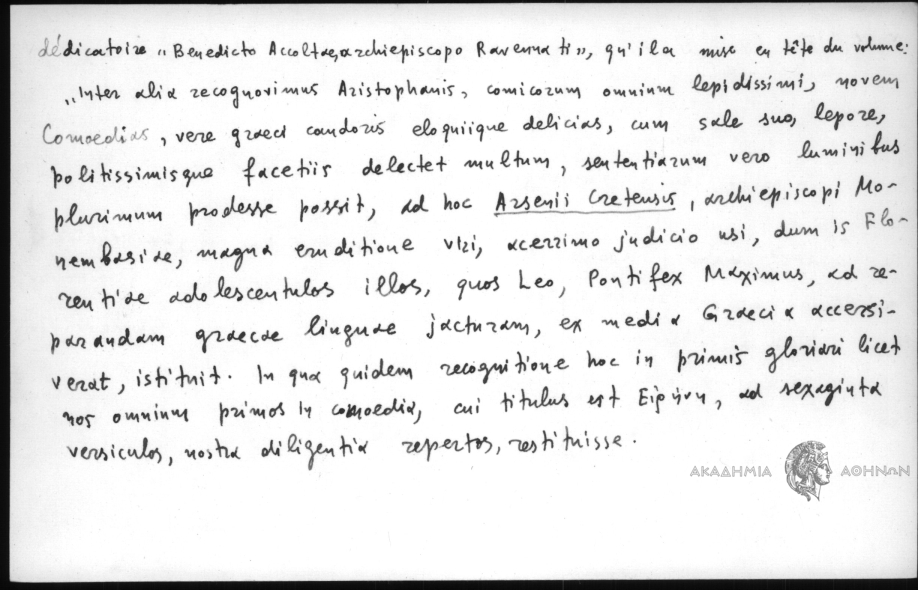 dédicatoire „Benedicto Accoltae, archiepiscopo Ravennati”, qu'il a mise en tête du volume:
„Inter alia recognovimus Aristophanis, comicorum omnium lepidissimi, novem
Comoedias, vere graeci candoris eloquiique delicias, cum sale suo, lepore,
politissimisque facetiis delectet multum, sententiarum vero luminibus
plurimum prodesse possit, ad hoc Arsenii Cretensis, archiepiscopi Mo-
nembasiae, magna eruditione viri, acerrimo judicio usi, dum is Flo-
rentiae adolescentulos illos, quos Leo, Pontifex Maximus, ad re-
parandam graecae linguae jacturam, ex media Graecia accersi-
verat, istituit. In qua quidem recognitione hoc in primis gloriari licet
nos omnium primos in comoedia, cui titulus est Εἰρήνη, ad sexaginta
versiculos, nostra diligentia repertos, restituisse.
ΑΚΑΔΗΜΙΑ ΑΘΗΝΩΝ